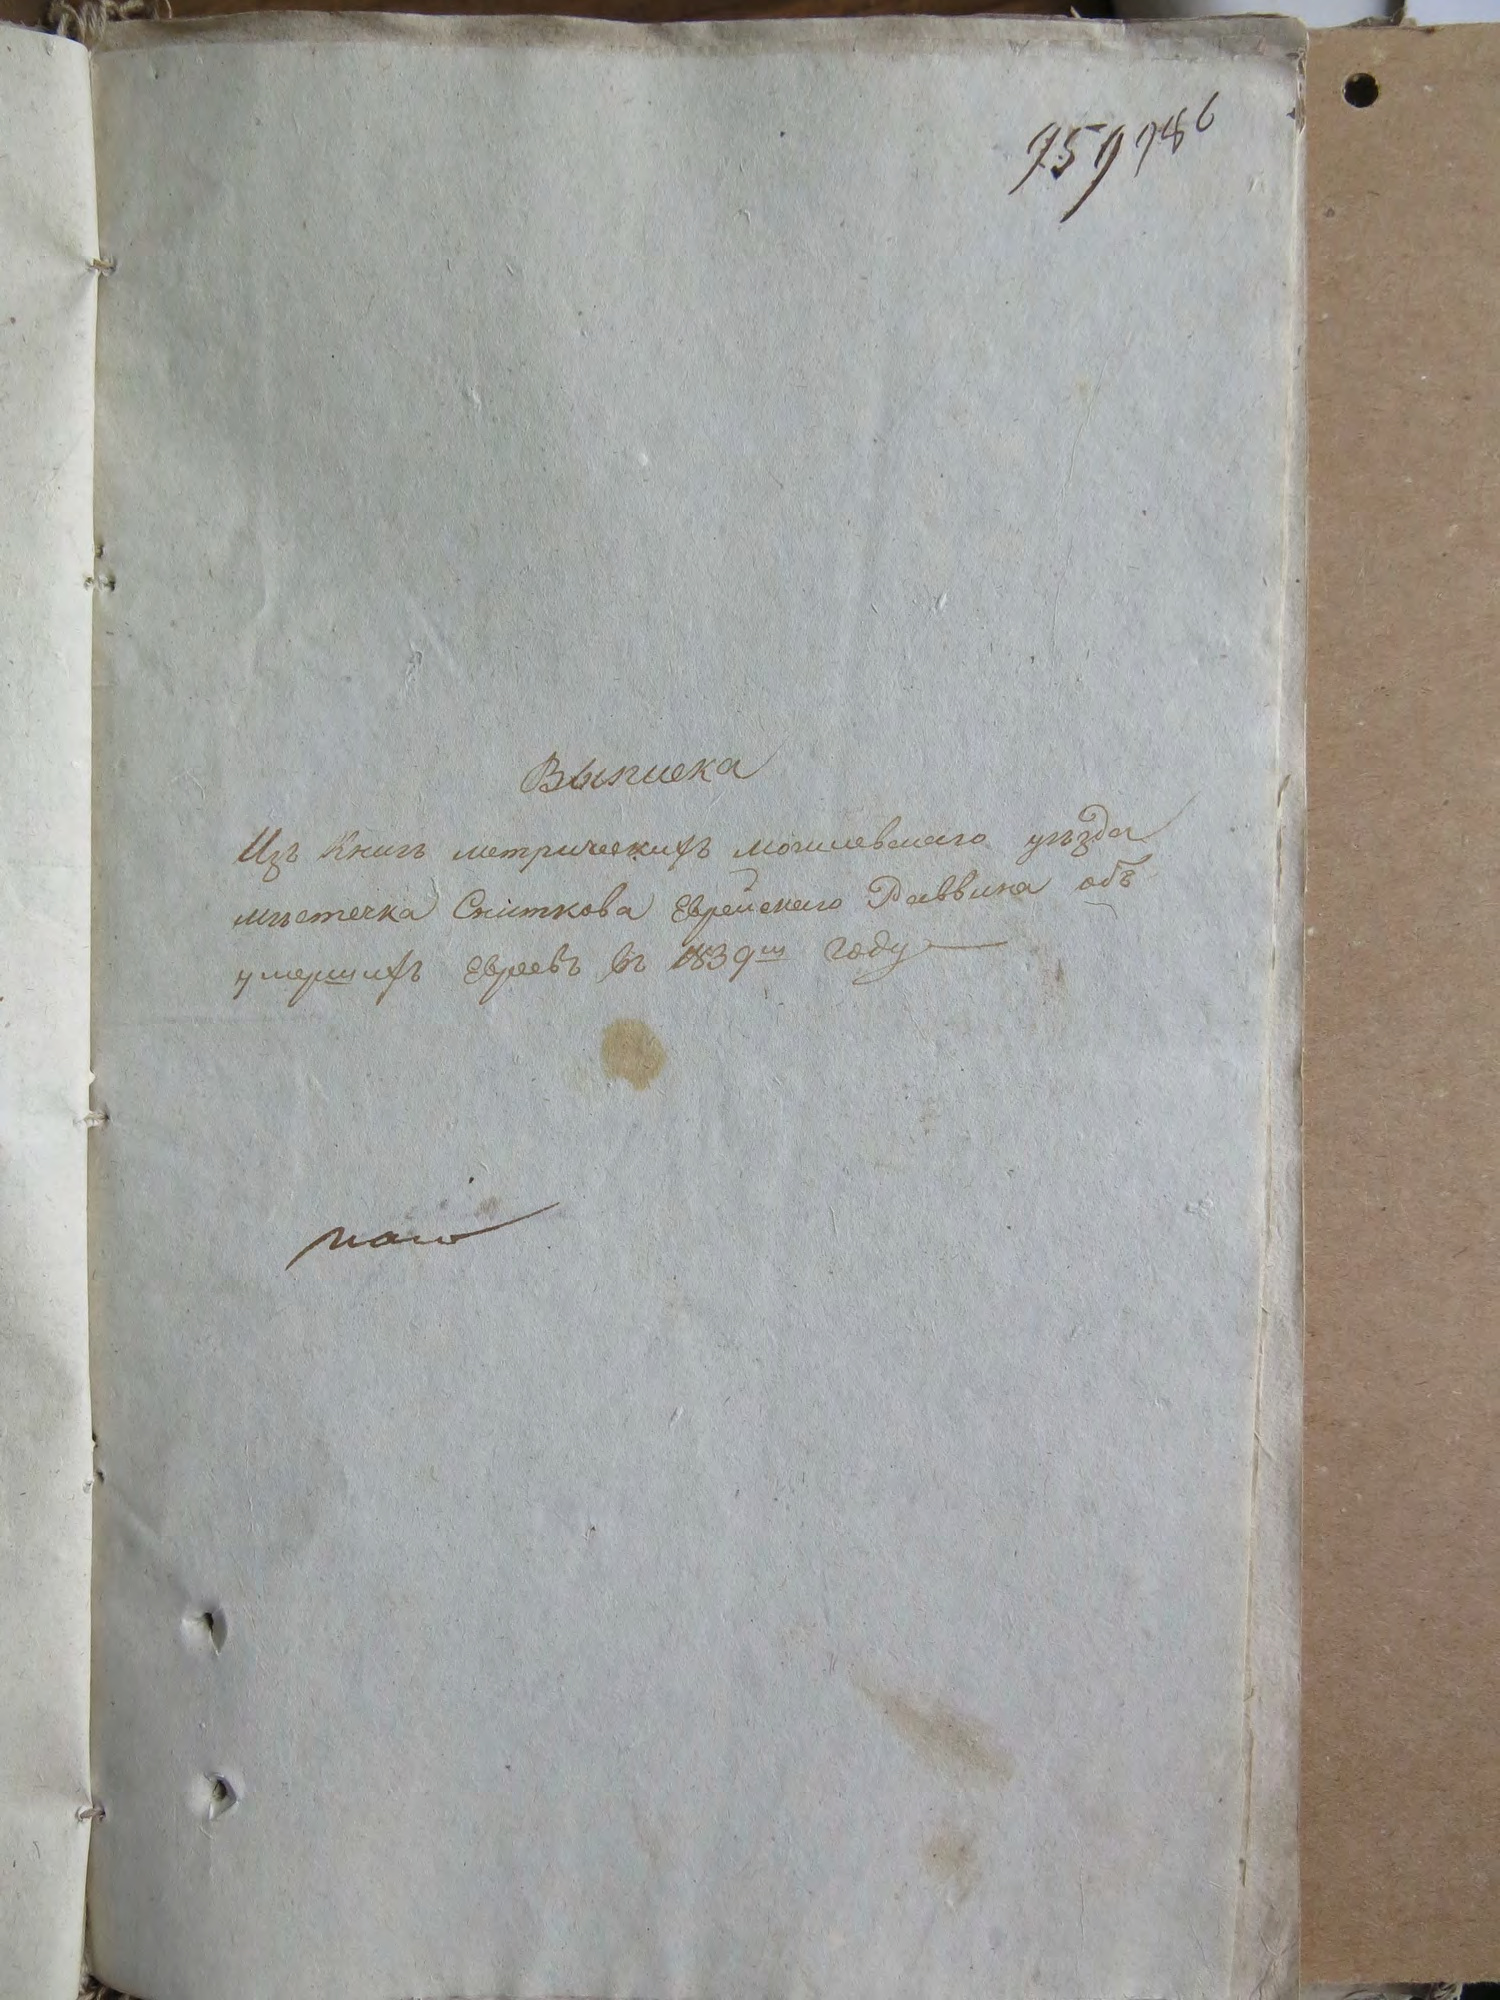 759 786
Выписка
Изъ Книгъ метрическихъ могилевскаго уѣзда
мѣстечка Сниткова Еврейскаго Раввина объ
умершихъ Евреевъ въ 1839ᵐ году